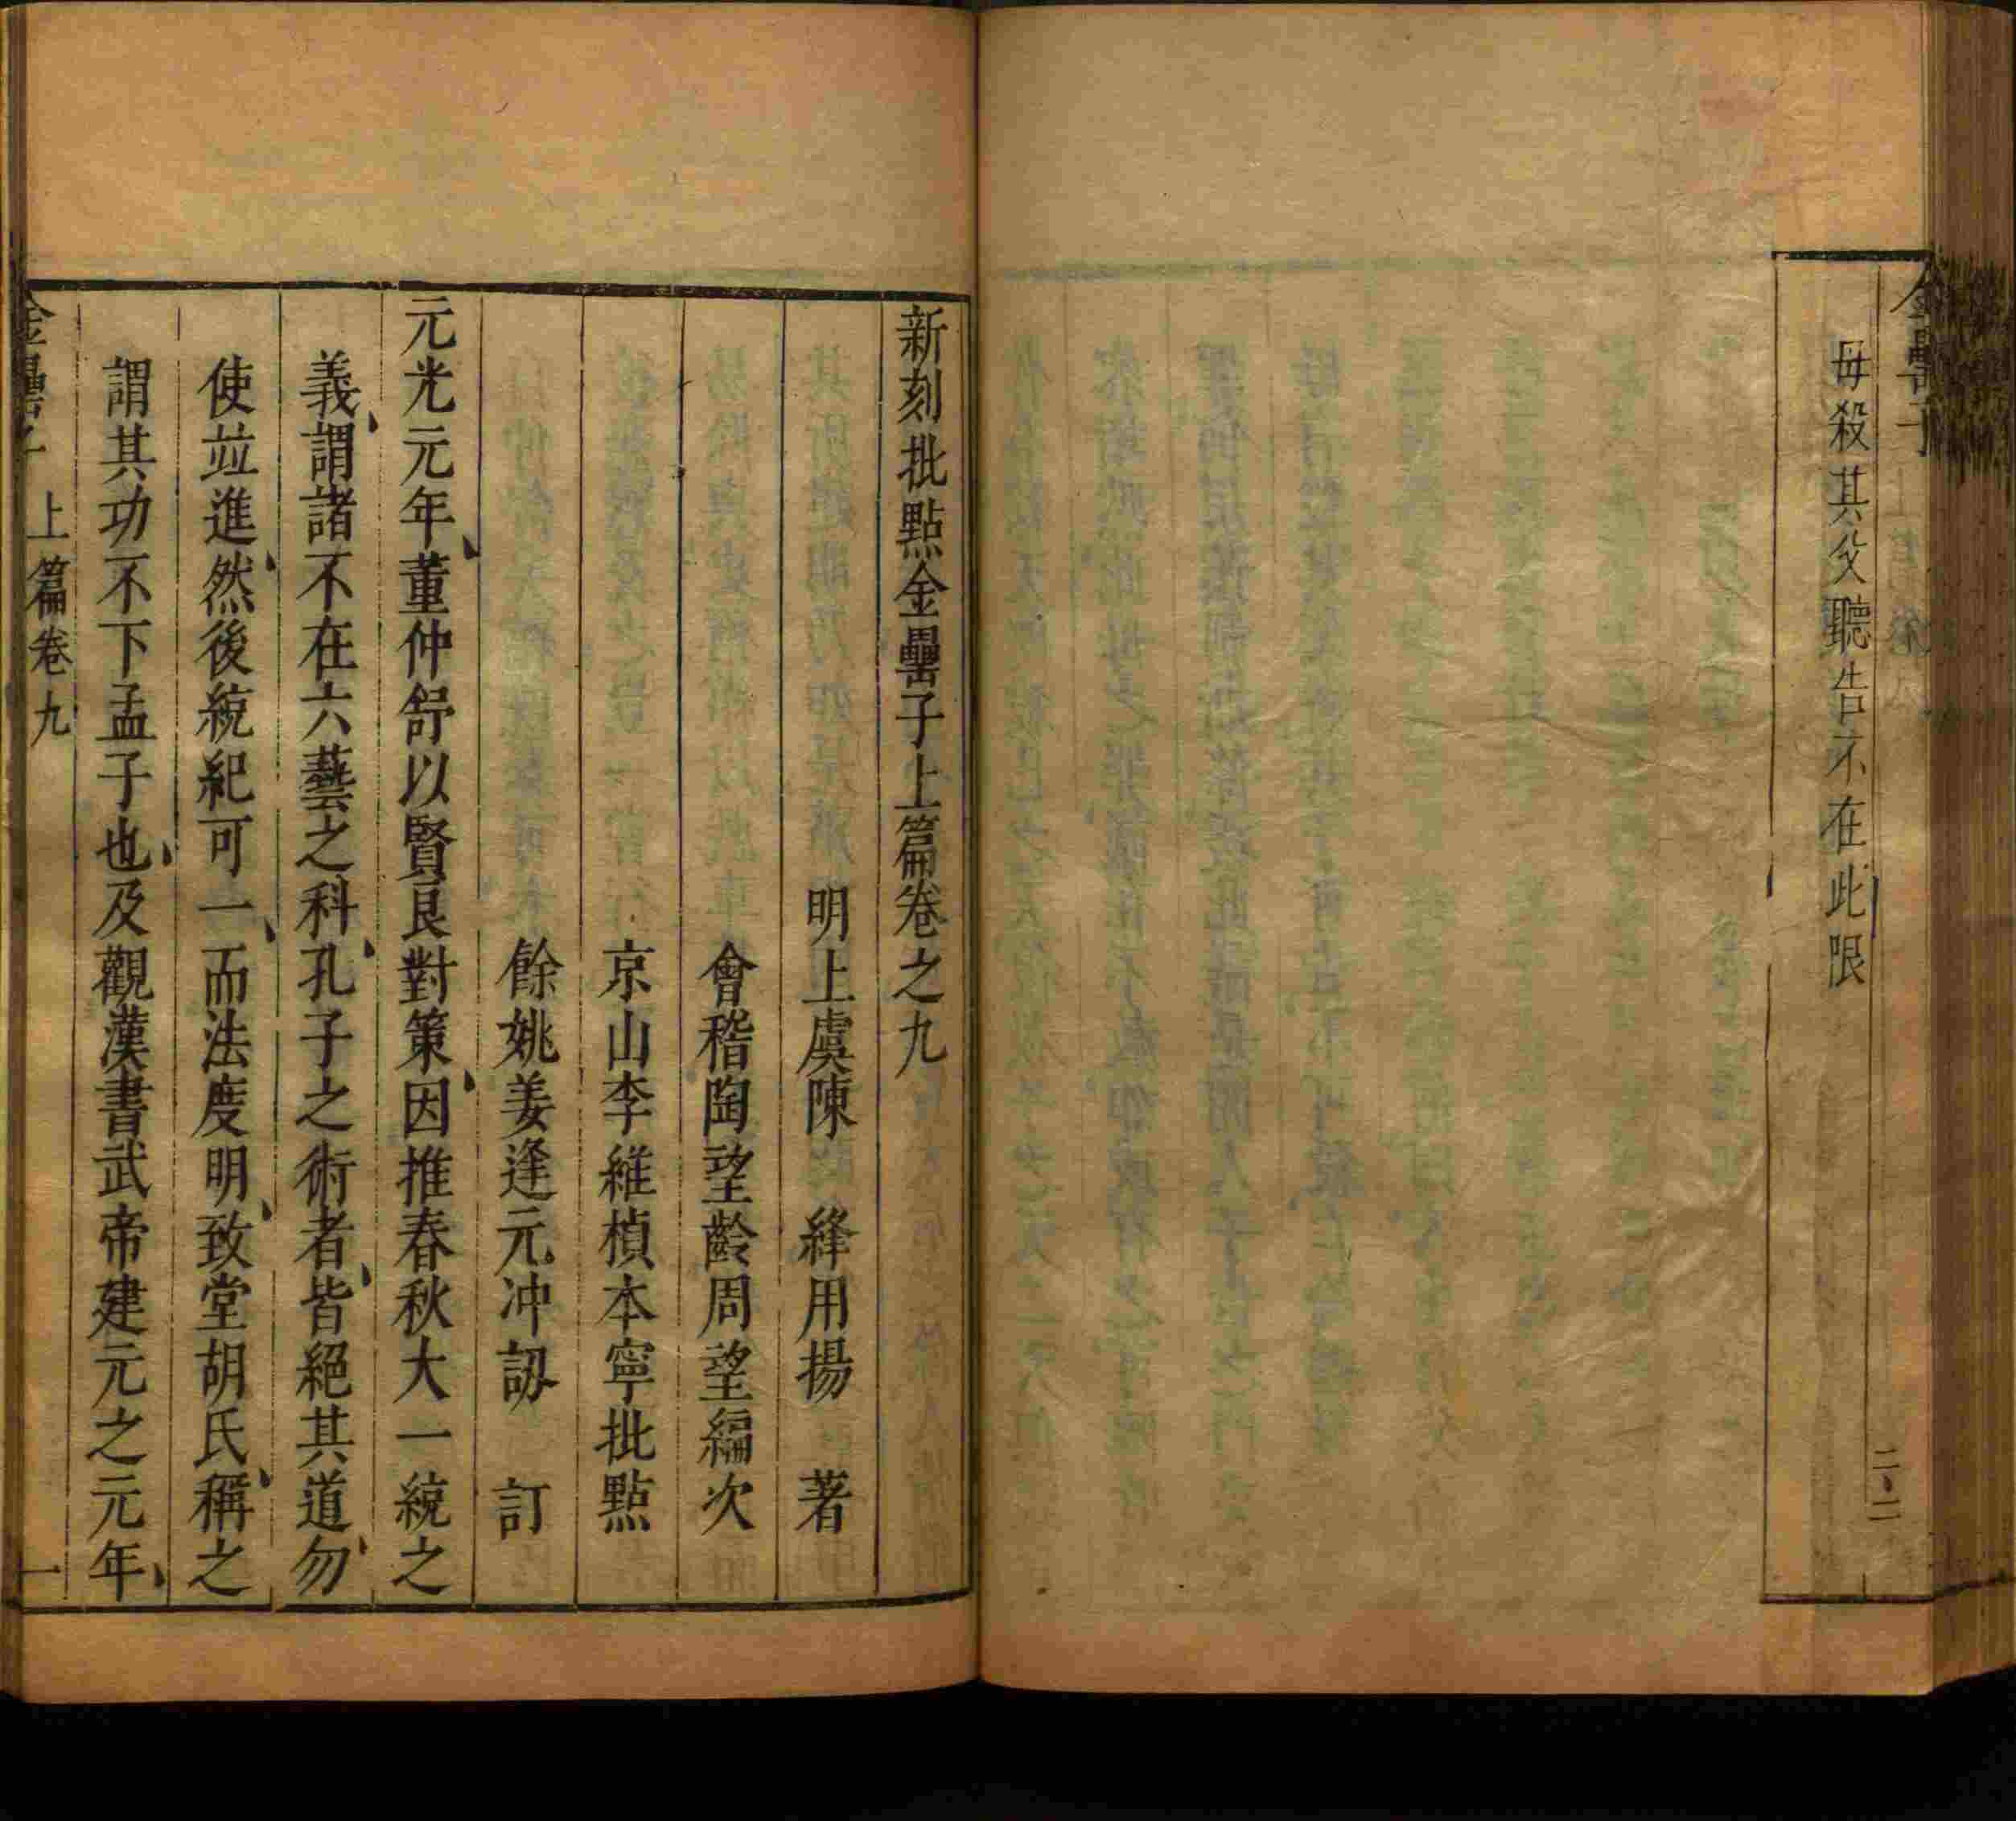 金罍子
母殺其父聽告不在此限
二二
新刻批點金罍子上篇卷之九
明上虞陳 絳用揚 著
會稽陶望齡周望編次
京山李維楨本寧批點
餘姚姜逢元冲訒 訂
元光元年董仲舒以賢良對策因推春秋大一統之
義謂諸不在六藝之科孔子之術者皆絕其道勿
使竝進然後統紀可一而法度明致堂胡氏稱之
謂其功不下孟子也及觀漢書武帝建元之元年
金罍子 上篇卷九 一